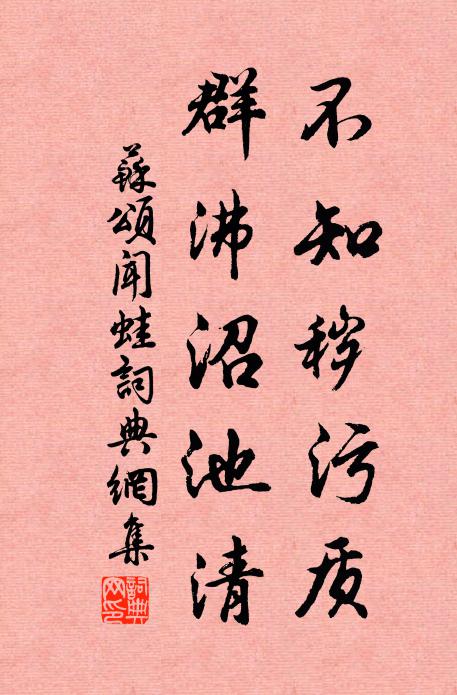 不知秽污质
群沸沼池清
蘇頌聞蛙詞典網集
詞典網印